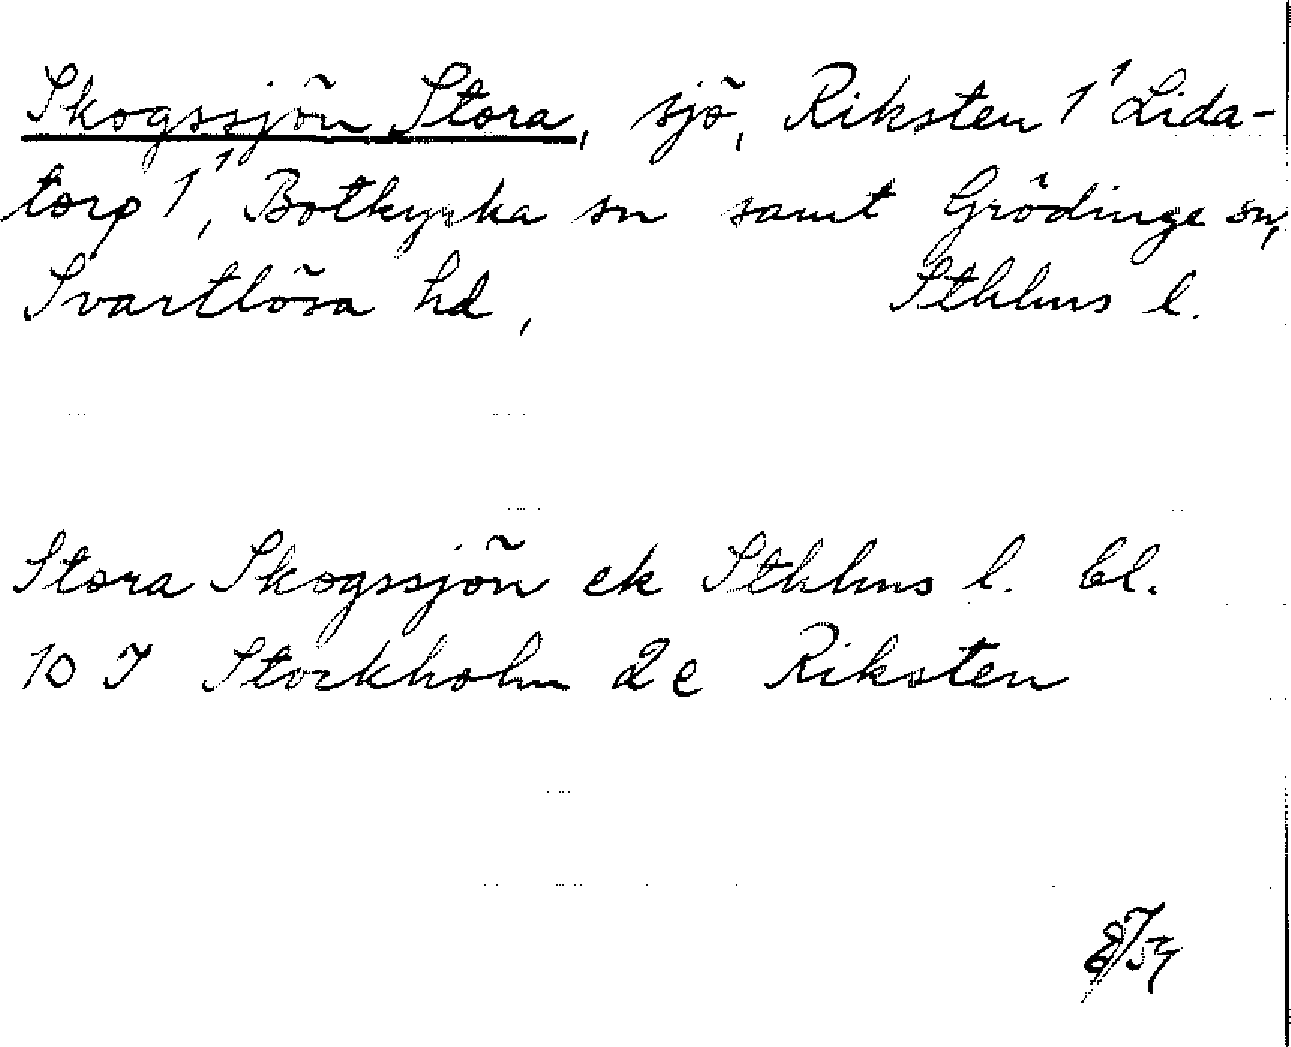 Skogssjön Stora, sjö, Riksten 1¹ Lida-
torp 1¹, Botkyrka sn samt Grödinge sn,
Svartlösa hd, Sthlms l.
Stora Skogssjön ek Sthlms l. bl.
10 I Stockholm 2e Riksten